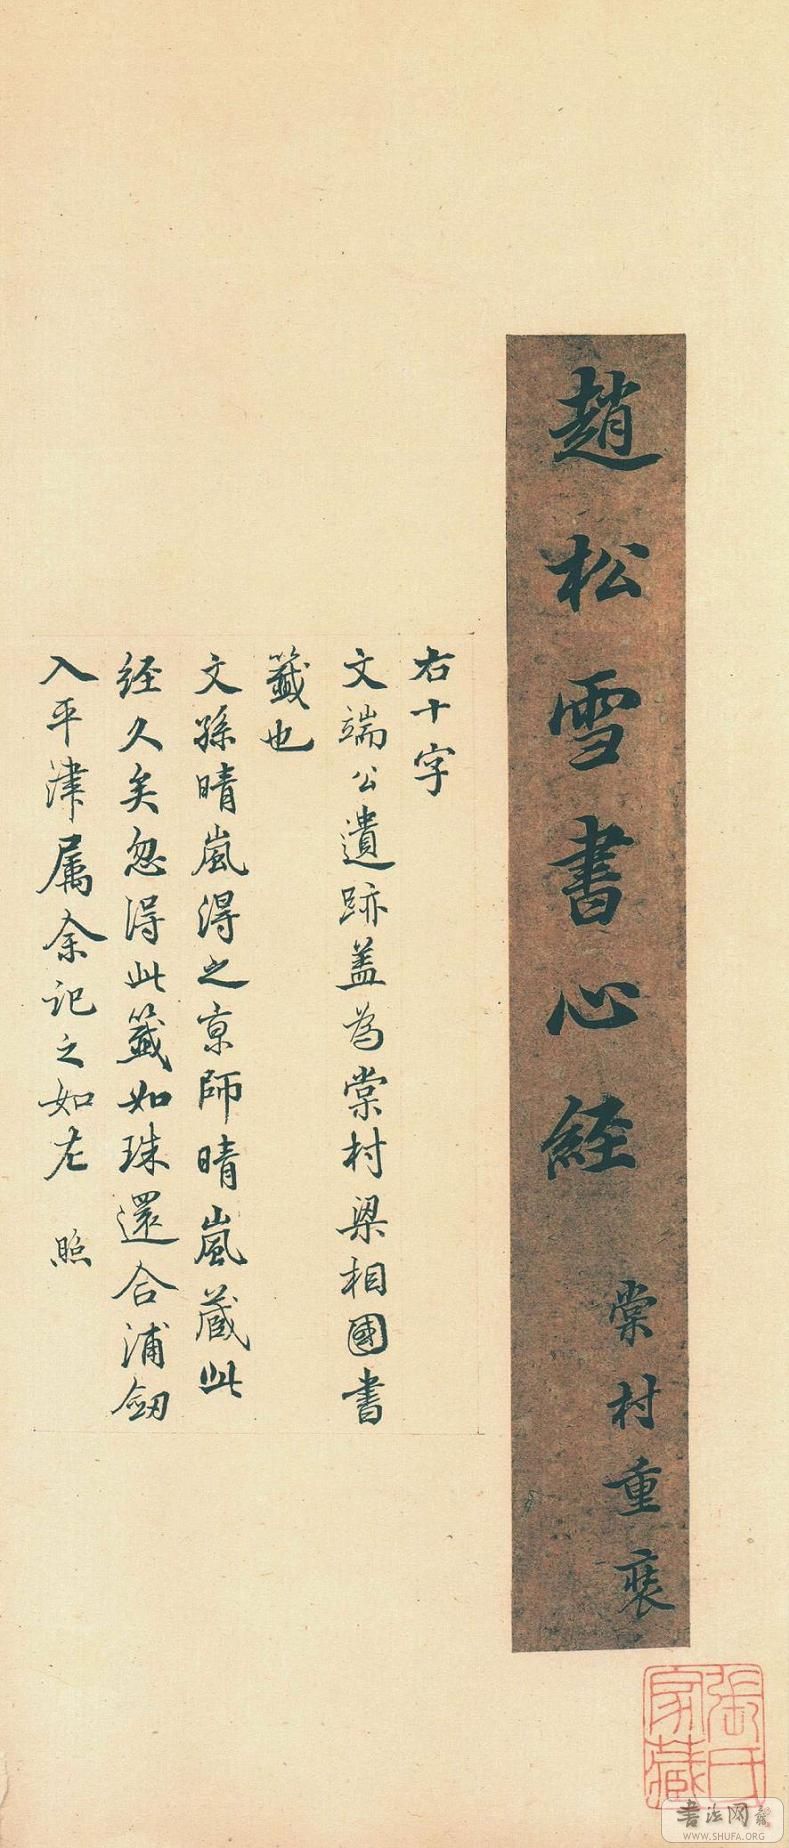 趙松雪書心経
棠村重裘
右十字
文端公遺跡盖為棠村梁相國書
籤也
文孫晴嵐得之京師晴嵐蔵此
経久矣忽得此籤如珠還合浦劔
入平津属余記之如左 照
張氏家藏
書法网
WWW.SHUFA.ORG